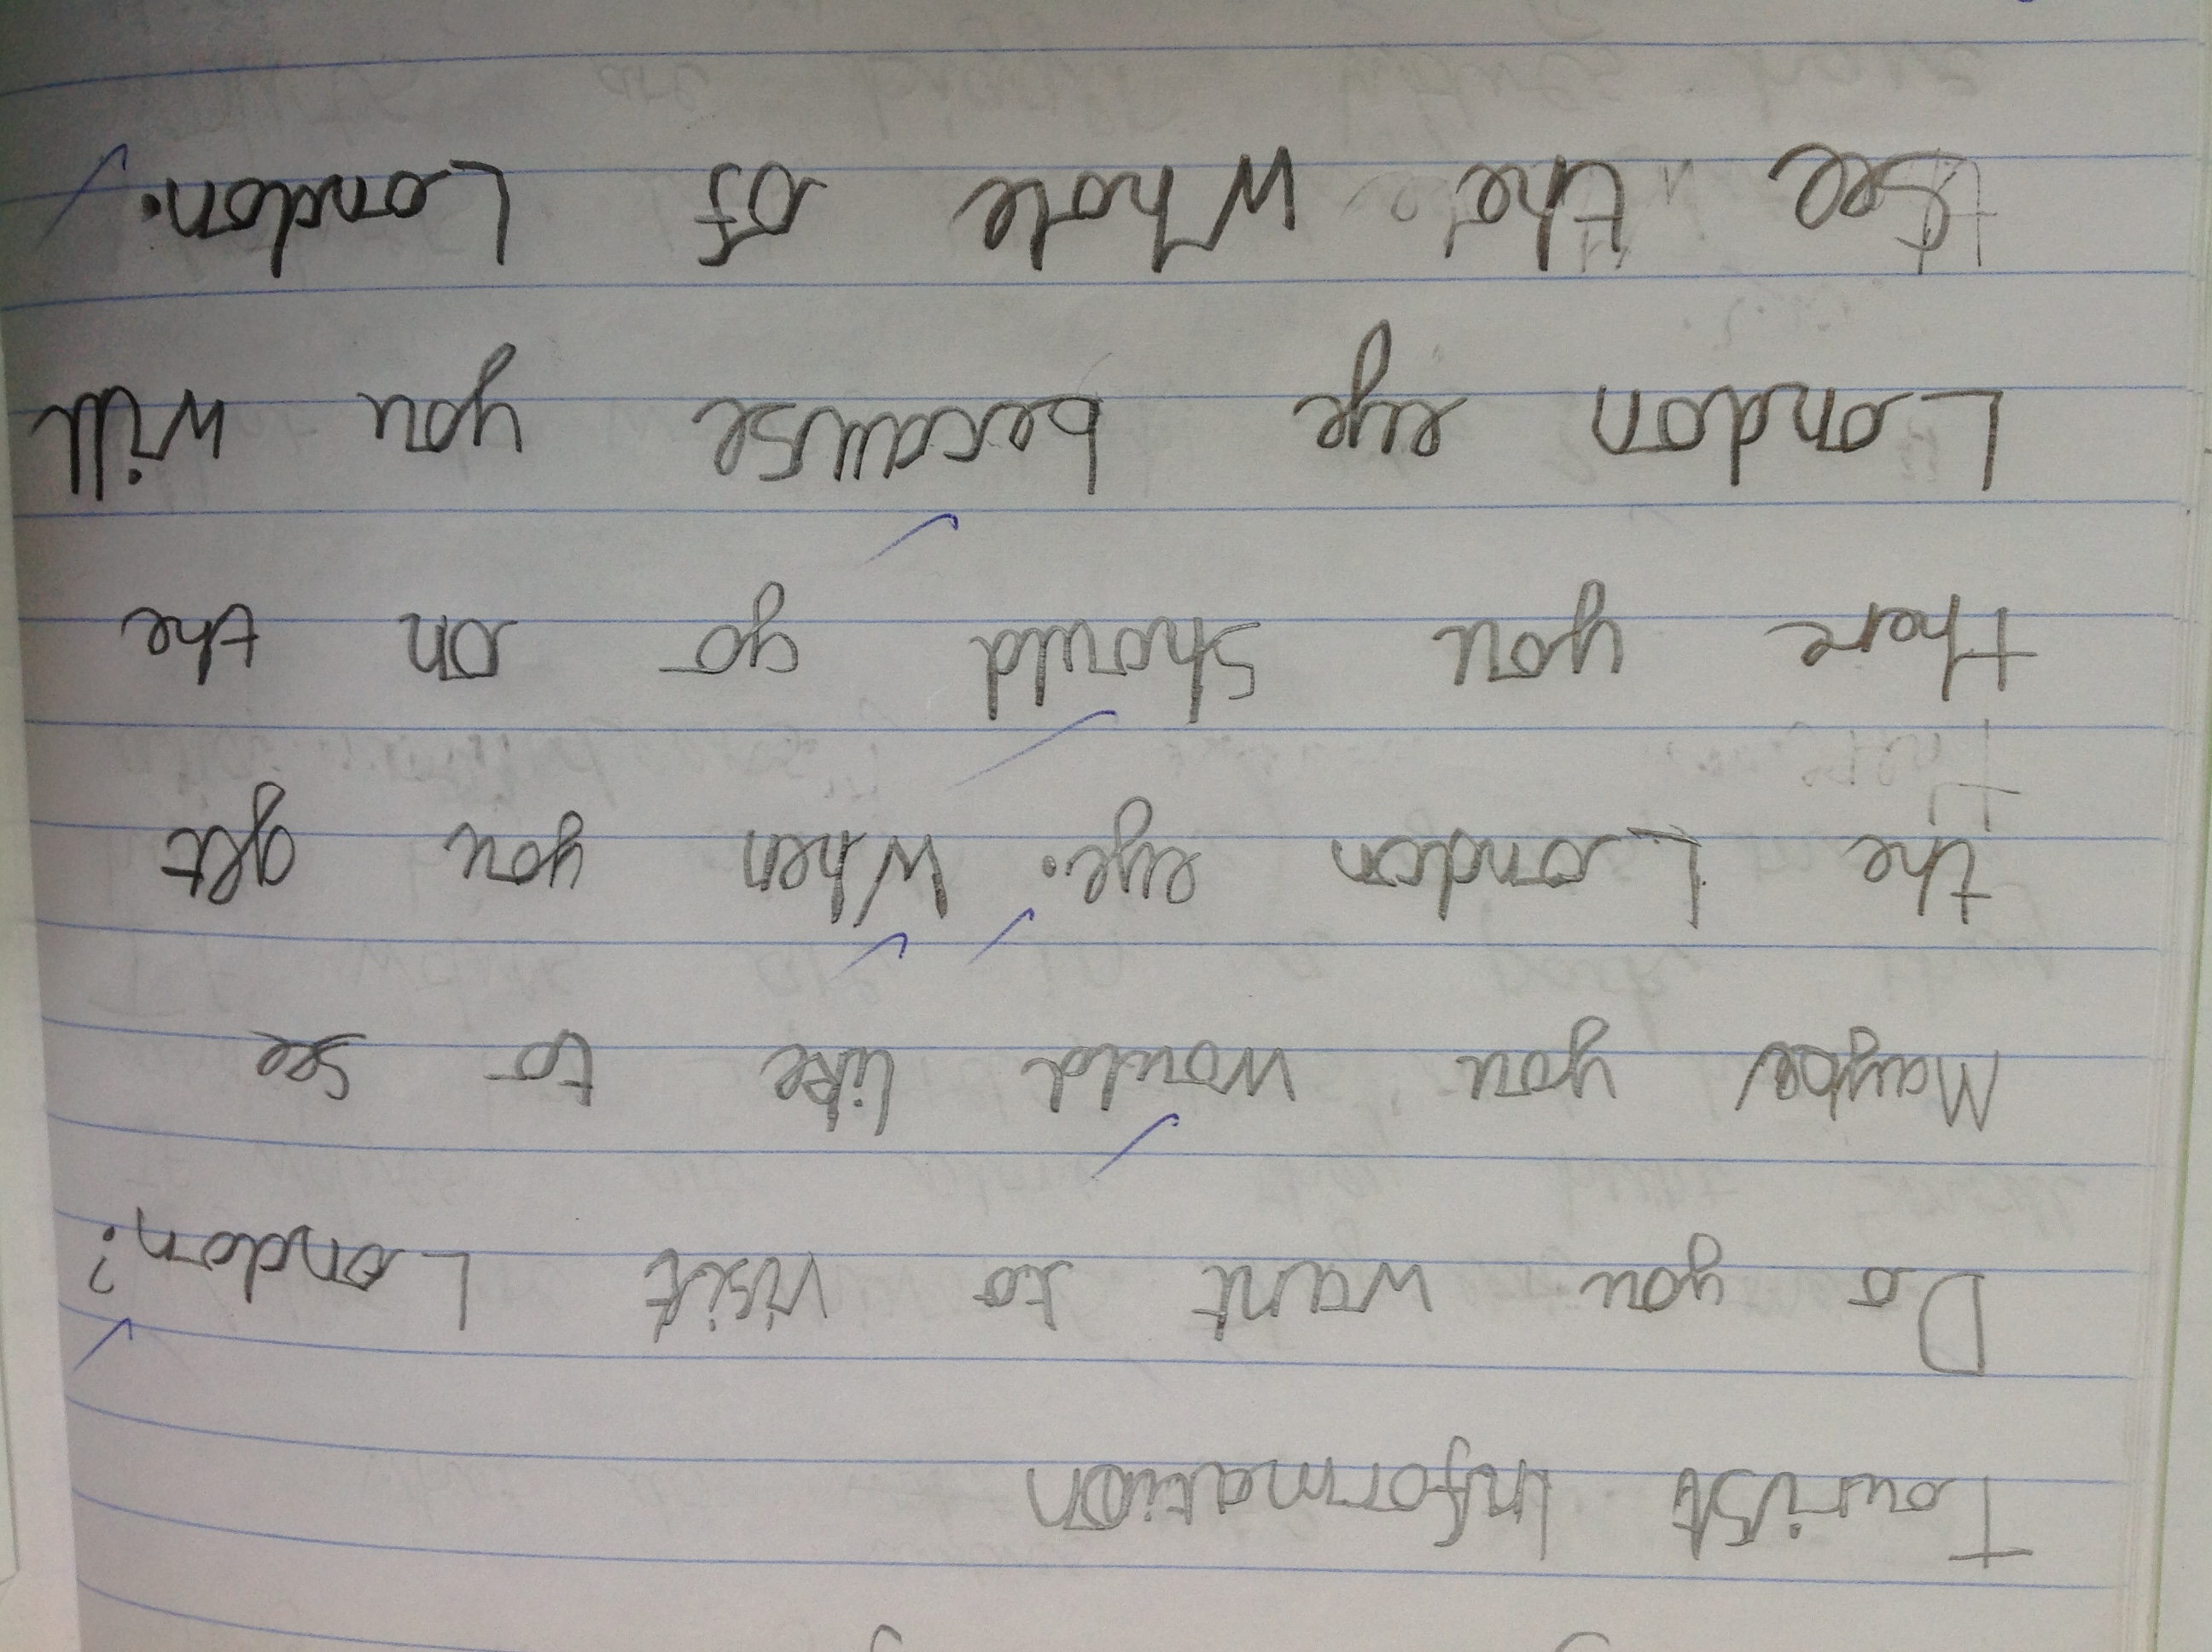 Tourist information
Do you want to visit London?
Maybe you would like to see
the London eye. When you get
there you should go on the
London eye because you will
see the whole of London.